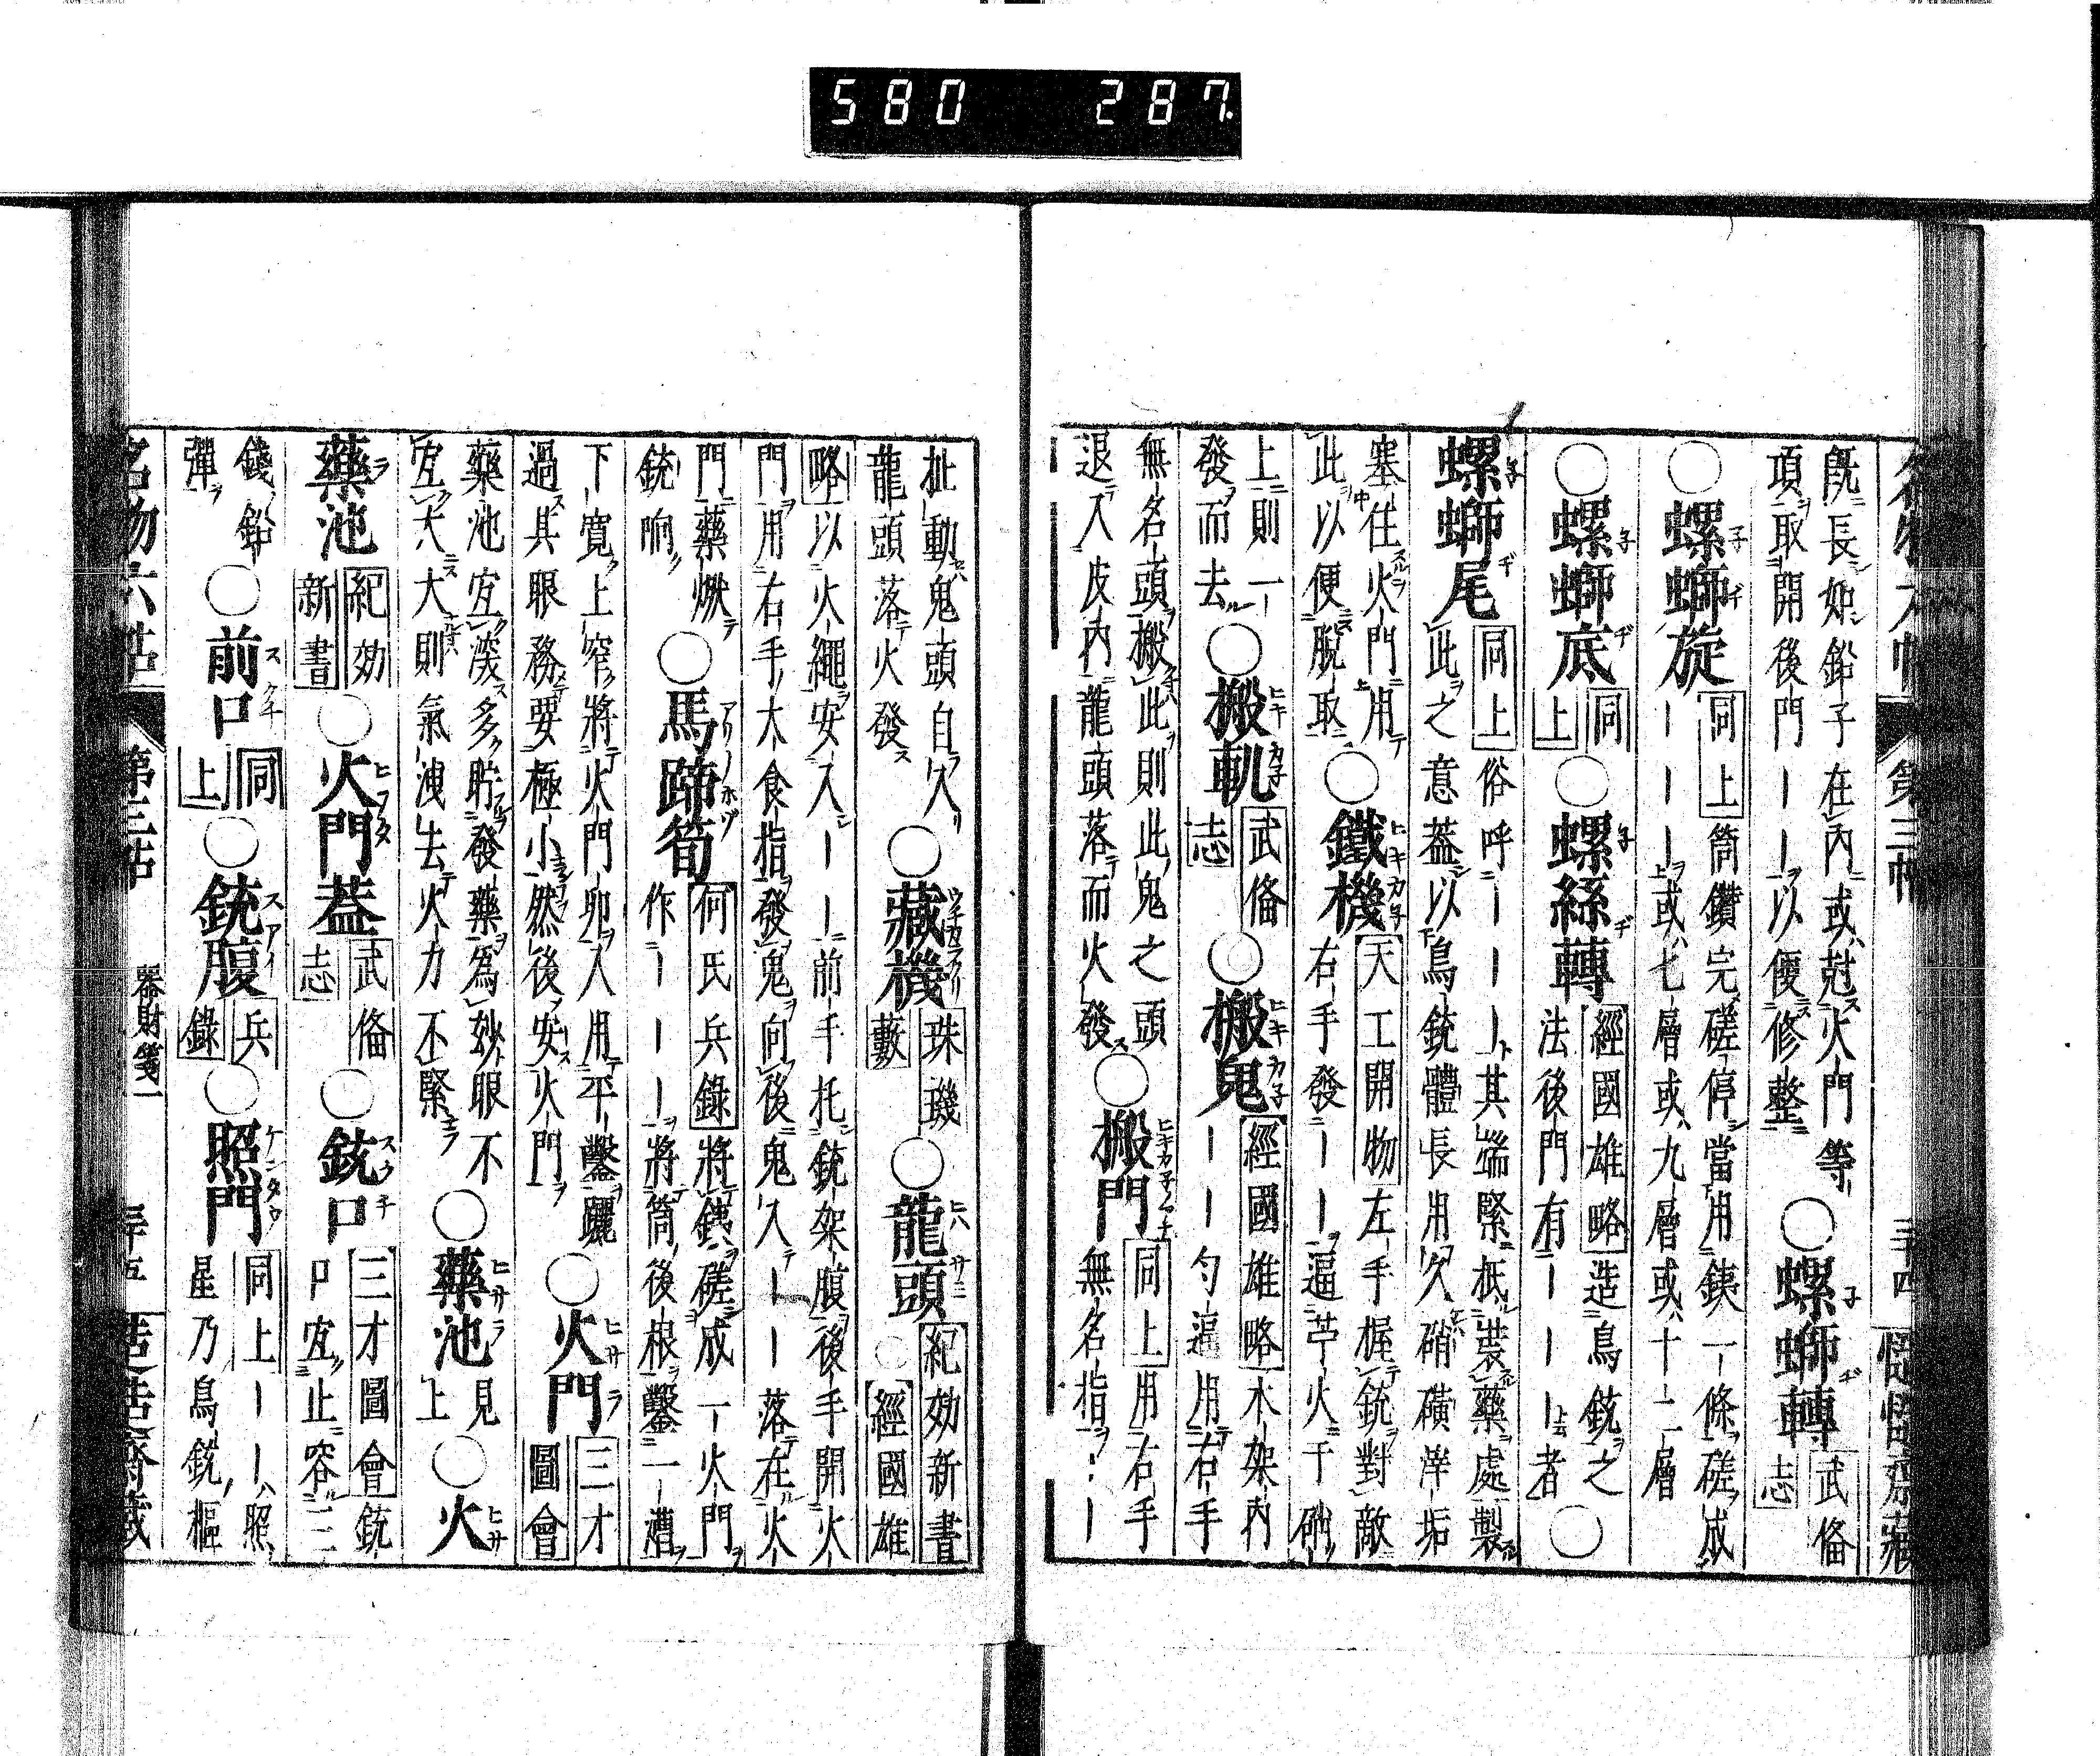 580 287.
第三帖 三十四
既長如鉛子在內或尅火門等○螺螄轉武俻
項取開後門ーーー以便修整 志
○螺螄旋同上筒鑽完磋停當用鉄一條磋成
ーーー或七層或九層或十二層
○螺螄底同○螺絲轉經國雄略造鳥銃之○
上 法後門有ーーー者
螺螄尾同上俗呼ーーー其端緊抵裝藥處製
此之意蓋以鳥銃體長用久硝磺滓垢
塞住火門用○鐵機天工開物左手握銃對敵
此以便脫取 右手發ーー逼苧火于硝
上則一○搬軌武俻○搬鬼經國雄略木架內
發而去 志 ーー勺逼用右手
無名頭搬此則此鬼之頭○搬門同上用右手
退入皮內龍頭落而火發 無名指ーー
扯動鬼頭自入○藏機珠璣○龍頭紀効新書
龍頭落火發 藪 經國雄
略以火繩安入ーー前手托銃架腹後手開火
門用右手大食指發鬼向後鬼入ーー落在火
門藥燃○馬蹄筍何氏兵錄將鉄磋成一火門
銃响 作ーーー將筒後根鑿一漕
下寬上窄將火門卯入用平鑿躧○火門三才
過其眼務要極小然後安火門 圖會
藥池宐淡多貯發藥為妙眼不○藥池見○火
宐大大則氣洩去火力不緊 上
藥池紀効○火門蓋武俻○銃口三才圖會銃
新書 志 口宐止容三
錢鉛○前口同○銃腹兵○照門同上ーー照
彈 上 錄 星乃鳥銃樞
名物六帖 第三帖 器財箋一